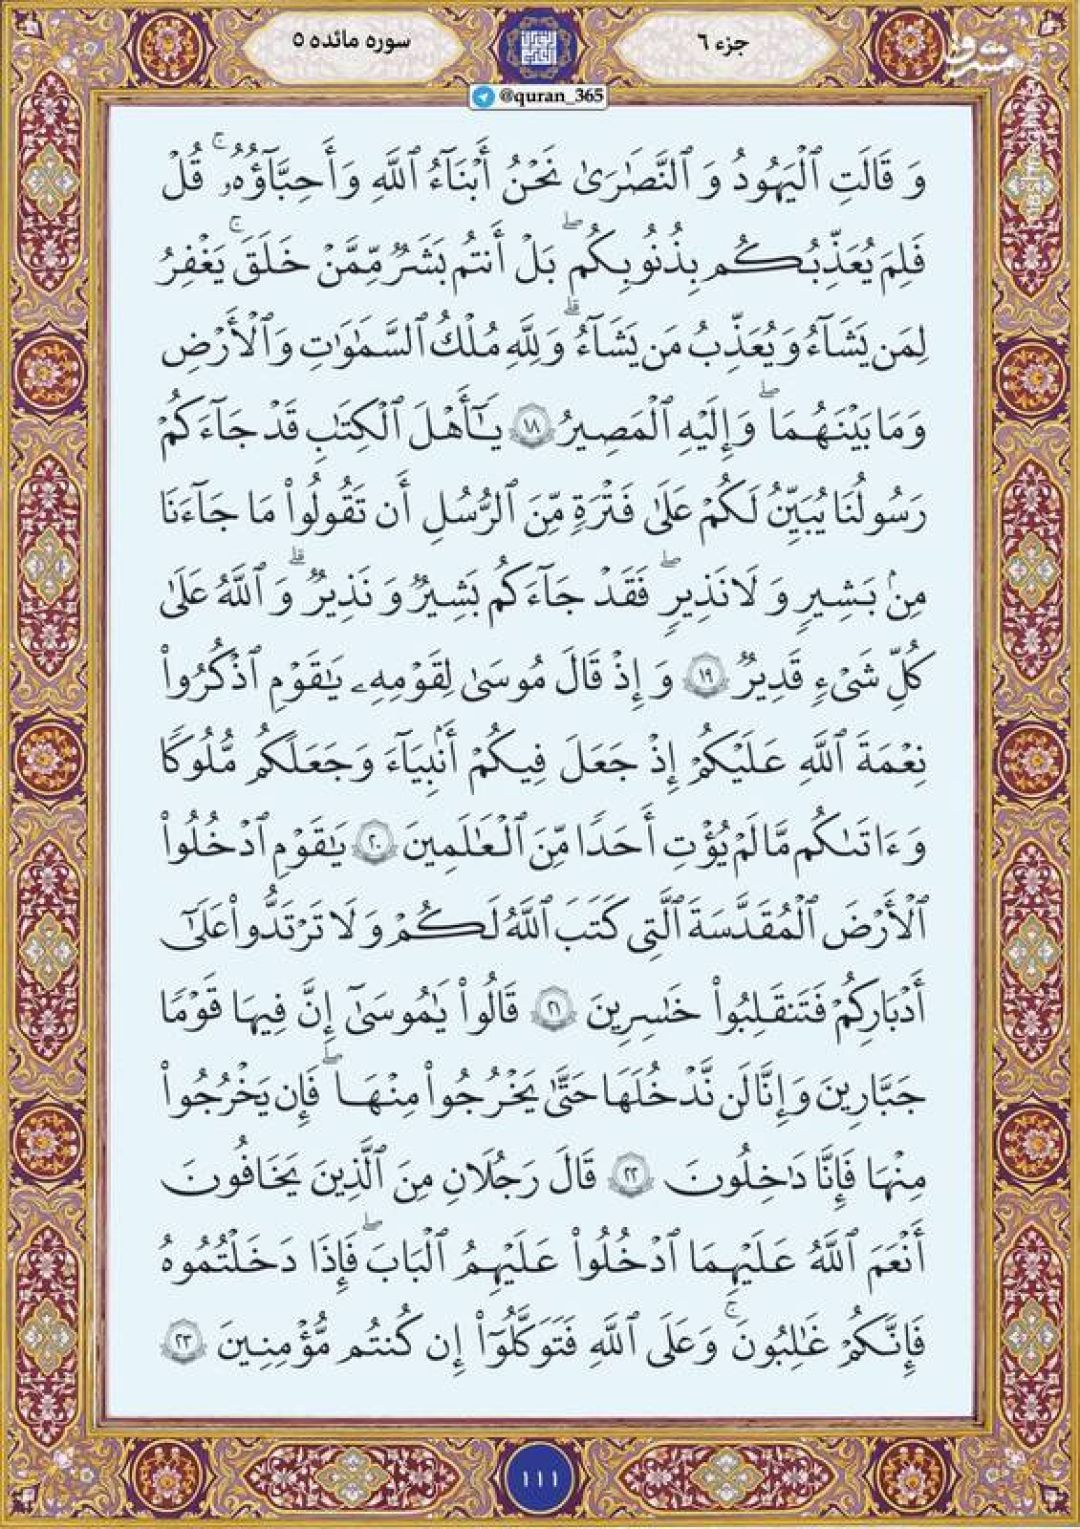 جزء ۶
سوره مائده ۵
@quran_365
مشرق
وَ قَالَتِ ٱلْيَهُودُ وَ ٱلنَّصَٰرَىٰ نَحْنُ أَبْنَٰٓؤُا۟ ٱللَّهِ وَأَحِبَّٰٓؤُهُۥ ۚ قُلْ
فَلِمَ يُعَذِّبُكُم بِذُنُوبِكُم ۖ بَلْ أَنتُم بَشَرٌ مِّمَّنْ خَلَقَ ۚ يَغْفِرُ
لِمَن يَشَآءُ وَ يُعَذِّبُ مَن يَشَآءُ ۗ وَلِلَّهِ مُلْكُ ٱلسَّمَٰوَٰتِ وَٱلْأَرْضِ
وَمَا بَيْنَهُمَا ۖ وَإِلَيْهِ ٱلْمَصِيرُ ١٨ يَٰٓأَهْلَ ٱلْكِتَٰبِ قَدْ جَآءَكُمْ
رَسُولُنَا يُبَيِّنُ لَكُمْ عَلَىٰ فَتْرَةٍ مِّنَ ٱلرُّسُلِ أَن تَقُولُوا۟ مَا جَآءَنَا
مِنۢ بَشِيرٍ وَ لَا نَذِيرٍ ۖ فَقَدْ جَآءَكُم بَشِيرٌ وَ نَذِيرٌ ۗ وَ ٱللَّهُ عَلَىٰ
كُلِّ شَىْءٍ قَدِيرٌ ١٩ وَ إِذْ قَالَ مُوسَىٰ لِقَوْمِهِۦ يَٰقَوْمِ ٱذْكُرُوا۟
نِعْمَةَ ٱللَّهِ عَلَيْكُمْ إِذْ جَعَلَ فِيكُمْ أَنۢبِيَآءَ وَجَعَلَكُم مُّلُوكًا
وَءَاتَىٰكُم مَّا لَمْ يُؤْتِ أَحَدًا مِّنَ ٱلْعَٰلَمِينَ ٢٠ يَٰقَوْمِ ٱدْخُلُوا۟
ٱلْأَرْضَ ٱلْمُقَدَّسَةَ ٱلَّتِى كَتَبَ ٱللَّهُ لَكُمْ وَ لَا تَرْتَدُّوا۟ عَلَىٰٓ
أَدْبَارِكُمْ فَتَنقَلِبُوا۟ خَٰسِرِينَ ٢١ قَالُوا۟ يَٰمُوسَىٰٓ إِنَّ فِيهَا قَوْمًا
جَبَّارِينَ وَ إِنَّا لَن نَّدْخُلَهَا حَتَّىٰ يَخْرُجُوا۟ مِنْهَا ۖ فَإِن يَخْرُجُوا۟
مِنْهَا فَإِنَّا دَٰخِلُونَ ٢٢ قَالَ رَجُلَانِ مِنَ ٱلَّذِينَ يَخَافُونَ
أَنْعَمَ ٱللَّهُ عَلَيْهِمَا ٱدْخُلُوا۟ عَلَيْهِمُ ٱلْبَابَ ۖ فَإِذَا دَخَلْتُمُوهُ
فَإِنَّكُمْ غَٰلِبُونَ ۚ وَعَلَى ٱللَّهِ فَتَوَكَّلُوٓا۟ إِن كُنتُم مُّؤْمِنِينَ ٢٣
١١١